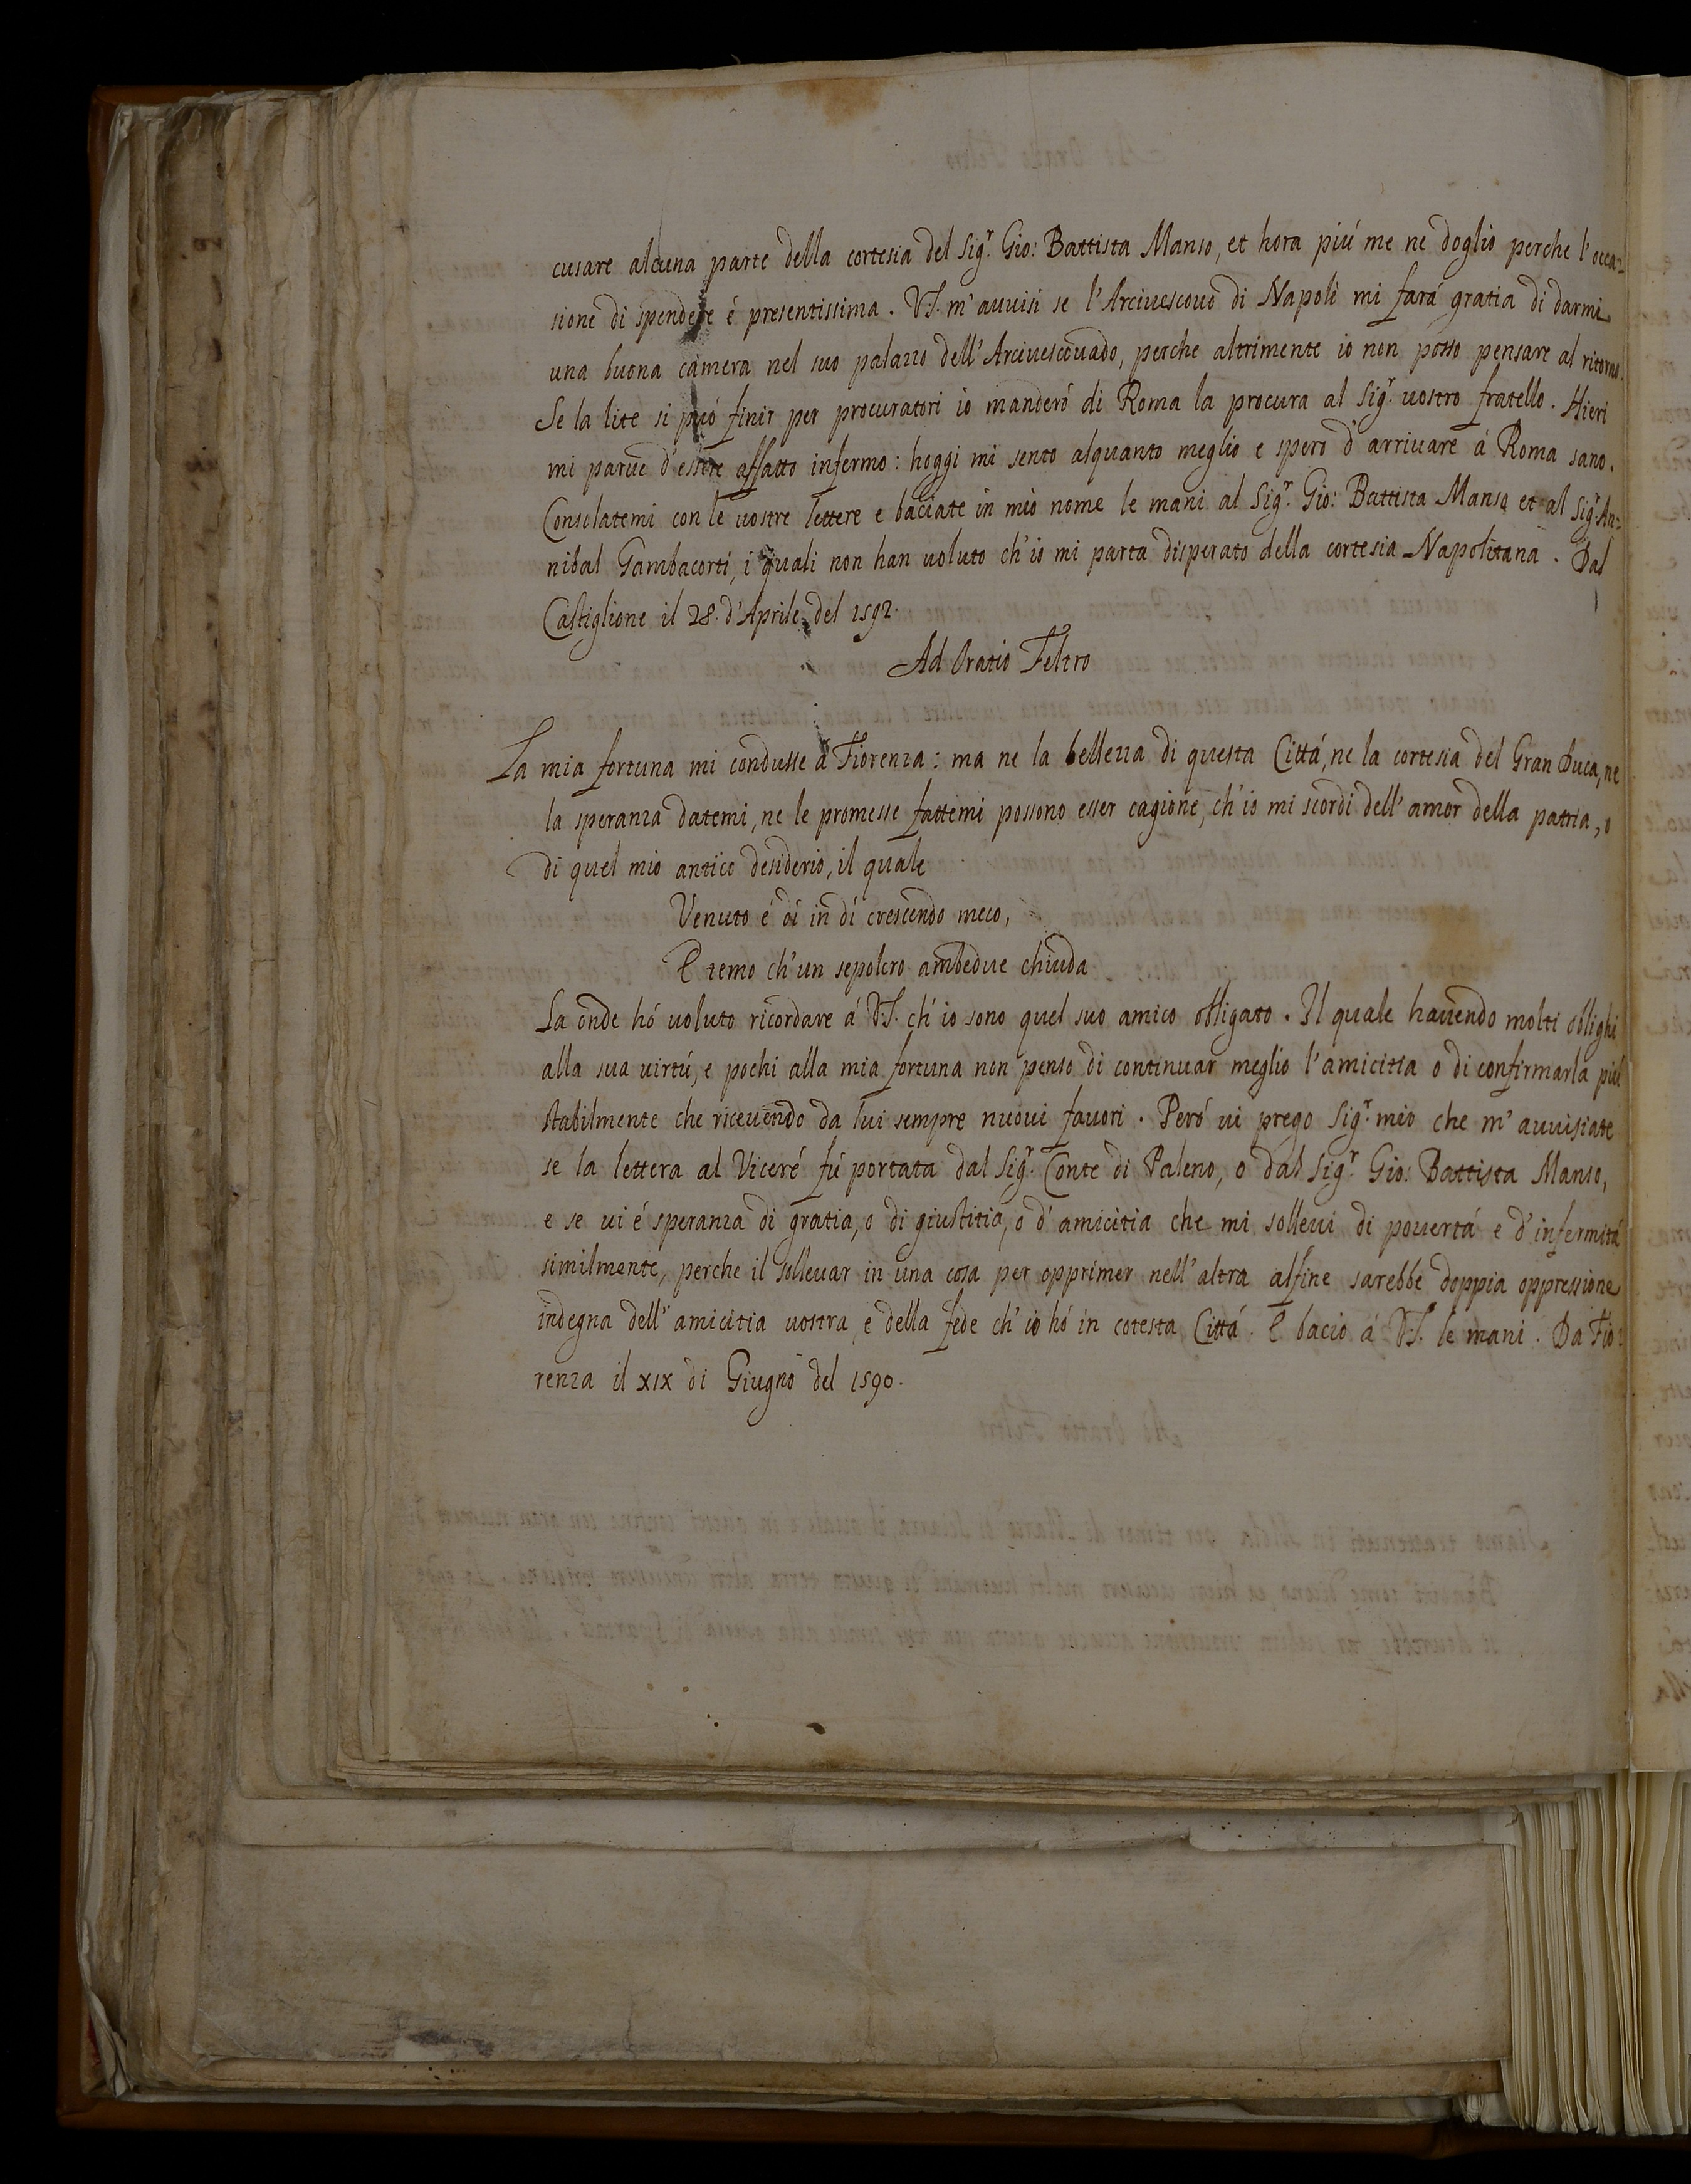 cusare alcuna parte della cortesia del Sig.r Gio: Battista Manso, et hora piú me ne doglio perche l'occa=
sione di spendere é presentissima. V.S. m'auuisi se l'Arciuescouo di Napoli mi fará gratia di darmi
una buona camera nel suo palazzo dell'Arciuescouado, perche altrimente io non posso pensare al ritorno.
Se la lite si puó finir per procuratori io manderó di Roma la procura al Sig.r uostro fratello. Hieri
mi parue d'essere affatto infermo: hoggi mi sento alquanto meglio e spero d'arriuare á Roma sano.
Consolatemi con le uostre lettere e baciate in mio nome le mani al Sig.r Gio: Battista Manso et al Sig.r An=
nibal Gambacorti, i quali non han uoluto ch'io mi parta disperato della cortesia Napolitana. Dal
Castiglione il 28. d'Aprile del 1592.
Ad Oratio Feltro
La mia fortuna mi condusse á Fiorenza: ma ne la bellezza di questa Cittá, ne la cortesia del Gran Duca, ne
la speranza datemi, ne le promesse fattemi possono esser cagione, ch'io mi scordi dell'amor della patria, o
di quel mio antico desiderio, il quale
Venuto é dí in dí crescendo meco,
E temo ch'un sepolcro ambedue chiuda
La onde hó uoluto ricordare á V.S. ch'io sono quel suo amico obligato. Il quale hauendo molti oblighi
alla sua uirtú, e pochi alla mia fortuna non penso di continuar meglio l'amicitia o di confirmarla piú
stabilmente che riceuendo da lui sempre nuoui fauori. Peró ui prego Sig.r mio che m'auuisiate
se la lettera al Viceré fú portata dal Sig.r Conte di Paleno, o dal Sig.r Gio: Battista Manso,
e se ui é speranza di gratia, o di giustitia, o d'amicitia che mi solleui di pouertá e d'infermitá
similmente, perche il solleuar in una cosa per opprimer nell'altra alfine sarebbe doppia oppressione
indegna dell'amicitia uostra e della fede ch'io hó in cotesta Cittá. E bacio á V.S. le mani. Da Fio=
renza il XIX di Giugno del 1590.